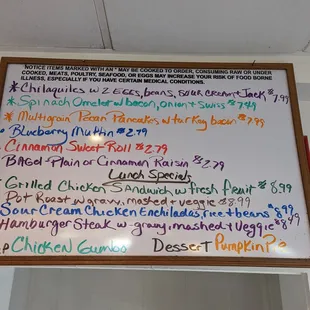 NOTICE ITEMS MARKED WITH AN * MAY BE COOKED TO ORDER, CONSUMING RAW OR UNDER
COOKED, MEATS, POULTRY, SEAFOOD, OR EGGS MAY INCREASE YOUR RISK OF FOOD BORNE
ILLNESS, ESPECIALLY IF YOU HAVE CERTAIN MEDICAL CONDITIONS.
* Chilaquiles w 2 EGGS, beans, sour cream + Jack $7.99
* Spinach Omelet w bacon, onion + Swiss $7.49
* Multigrain Pecan Pancakes w turkey bacon $7.99
Blueberry Muffin $2.79
Cinnamon Sweet Roll $2.79
BAGel - Plain or Cinnamon Raisin $2.79
Lunch Specials
Grilled Chicken Sandwich w fresh fruit $8.99
Pot Roast w gravy, mashed + veggie $8.99
Sour Cream Chicken Enchiladas, rice + beans $8.99
Hamburger Steak w gravy, mashed + Veggie $8.99
Chicken Gumbo Dessert Pumpkin Pie